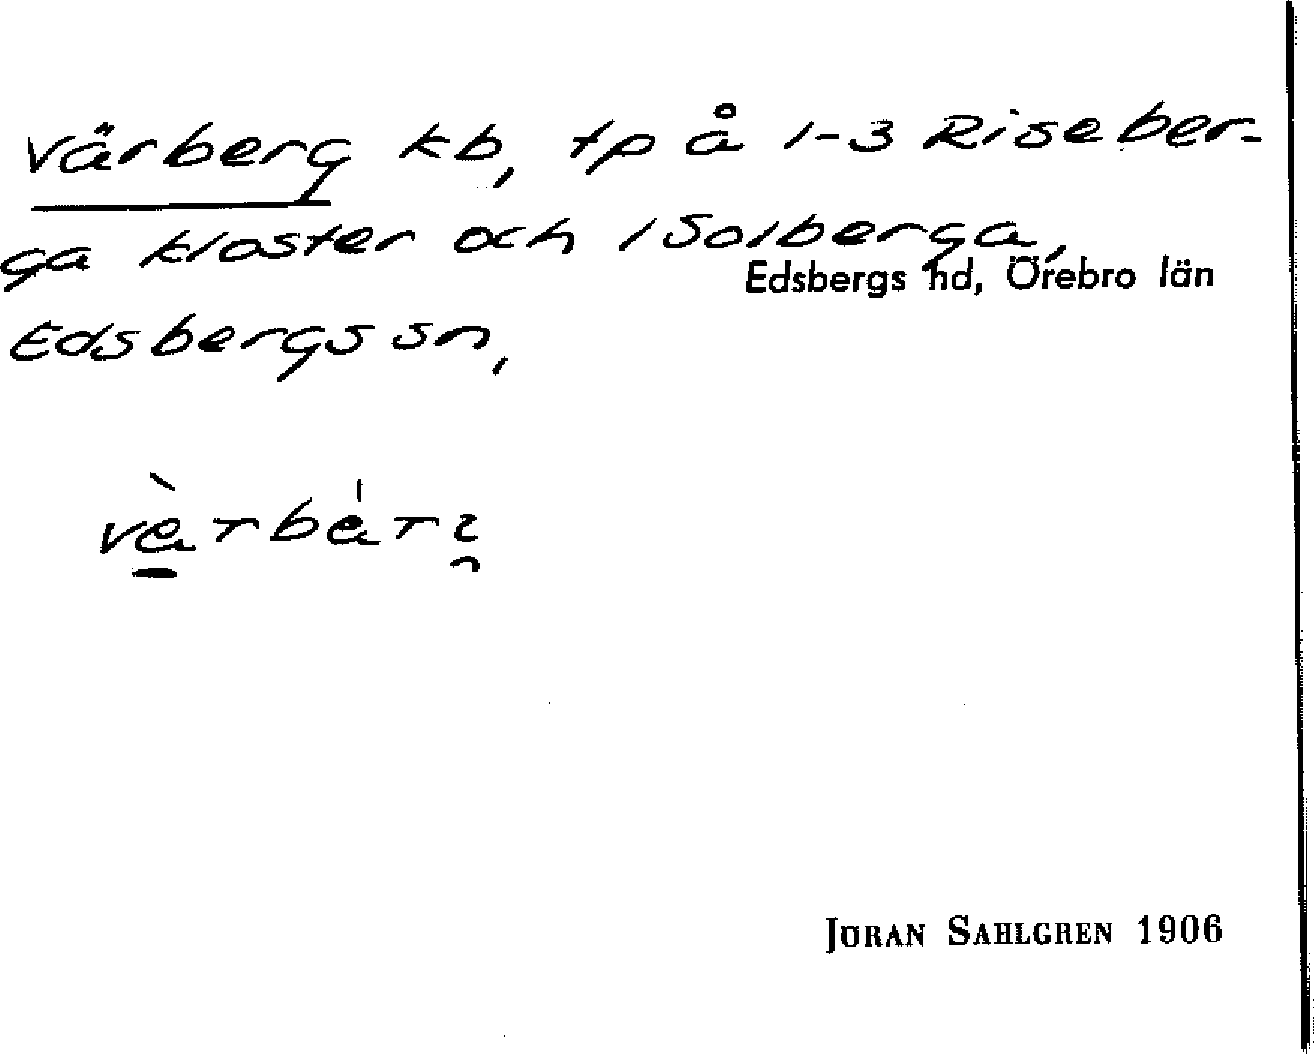 Värberg kb, tp å 1-3 Riseber-
ga kloster och 1 Solberga,
Edsbergs hd, Örebro län
Edsbergs sn,
JÖRAN SAHLGREN 1906